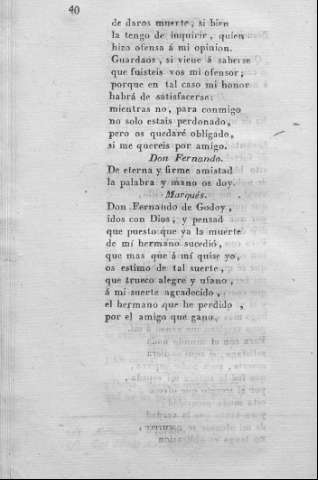 40
de daros muerte, si bien
la tengo de inquirir, quien
hizo ofensa á mi opinion.
Guardaos, si viene á saberse
que fuisteis vos mi ofensor;
porque en tal caso mi honor
habrá de satisfacerse:
mientras no, para conmigo
no solo estais perdonado,
pero os quedaré obligado,
si me quereis por amigo.
Don Fernando.
De eterna y firme amistad
la palabra y mano os doy.
Marqués.
Don Fernando de Godoy,
idos con Dios, y pensad
que puesto que ya la muerte
de mí hermano sucedió,
que mas que á mí quise yo,
os estimo de tal suerte,
que trueco alegre y ufano,
á mi suerte agradecido,
el hermano que he perdido,
por el amigo que gano.